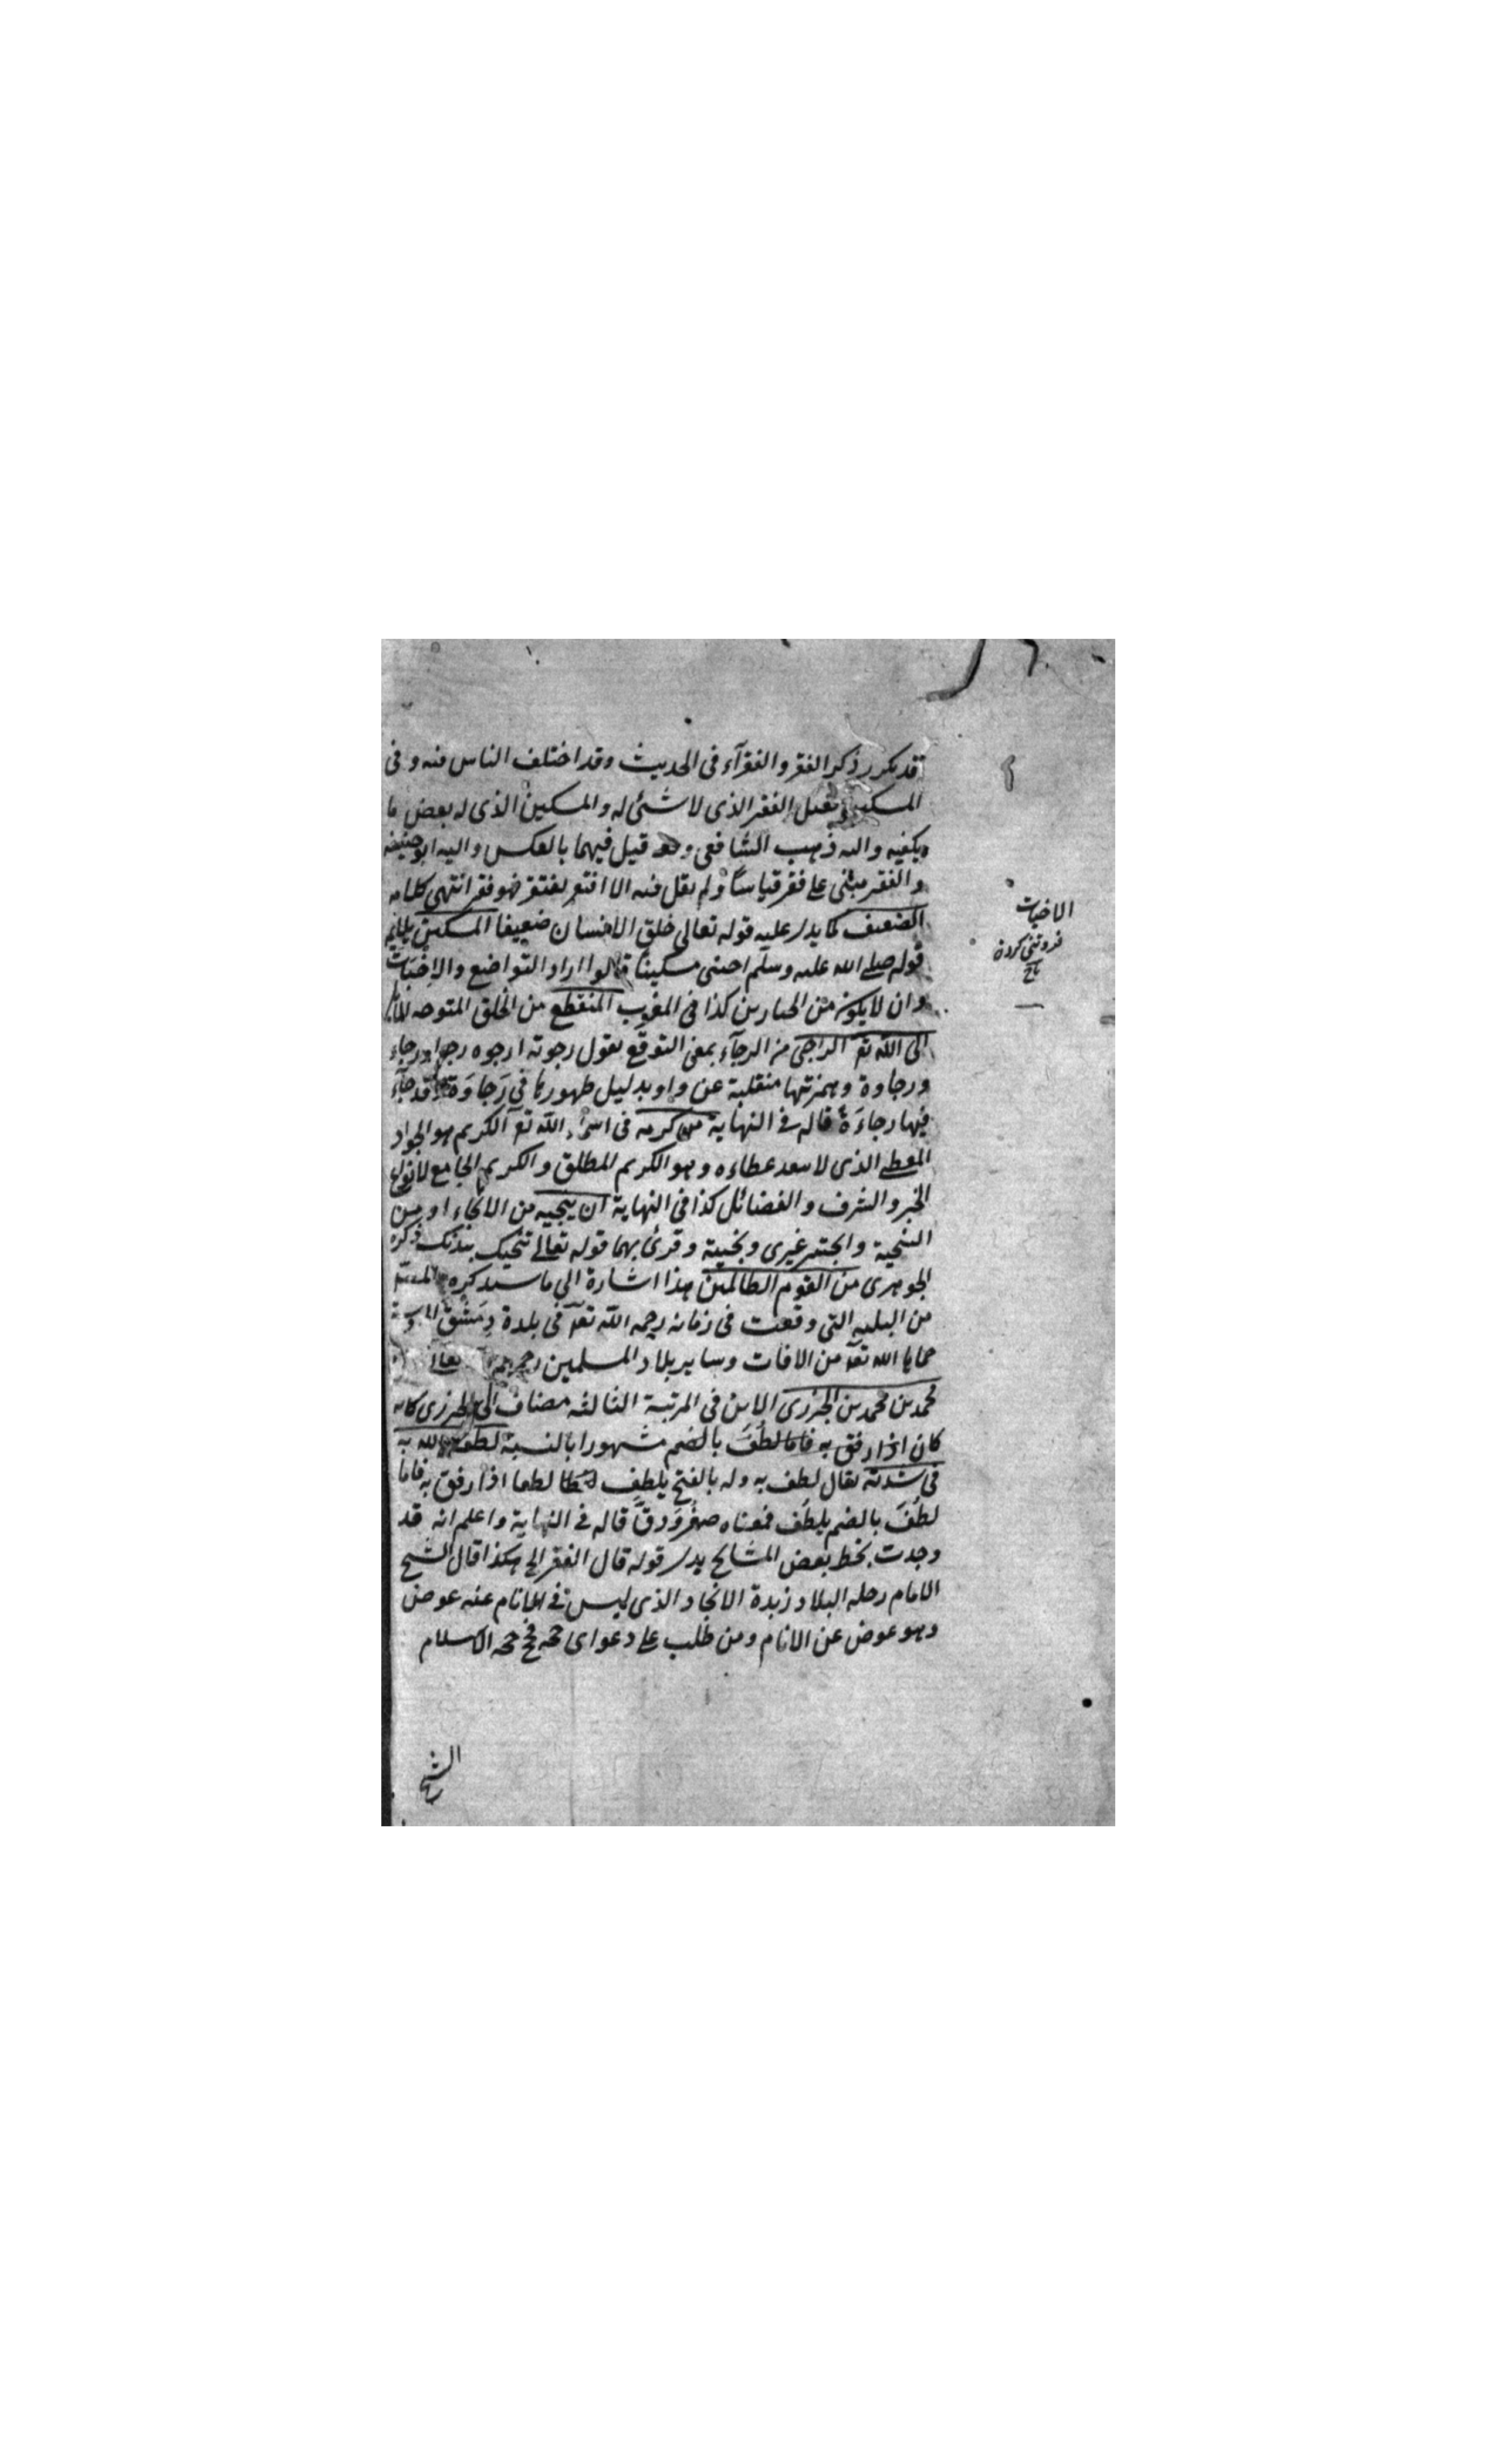 قد تكرر ذكر الفقر والفقراء فى الحديث وقد اختلف الناس فيه وفى
المسكين فقيل الفقير الذى لا شئ له والمسكين الذى له بعض ما
يكفيه واليه ذهب الشافعى وقد قيل فيهما بالعكس واليه ابو حنيفه
والفقير مبنى على فقر قياسا ولم يقل فيه الا افتقر يفتقر فهو فقير انتهى كلامه
الضعيف كما يدل عليه قوله تعالى خلق الانسان ضعيفا المسكين
قوله صلى الله عليه وسلم احينى مسكينا قالوا اراد التواضع والاخبات
وان لا يكون من الجبارين كذا فى المغرب المنقطع من الخلق المتوجه
الى الله تع الراجى من الرجآء بمعنى التوقع يقول رجوته ارجوه رجوا ورجاء
ورجاوة وهمزتها منقلبة عن واو بدليل ظهورها فى رَجاوَة وقد جآء
فيها رجاءَة قاله فى النهاية من كرمه فى اسمآء الله تع الكريم هو الجواد
المعطى الذى لا ينفد عطاءه وهو الكريم المطلق والكريم الجامع لانواع
الخير والشرف والفضائل كذا فى النهاية ان ينجيه من الانجاء او من
التنجية وانجيت غيرى ونجيته وقرئ بهما قوله تعالى ننجيك ببدنك ذكره
الجوهرى من القوم الظالمين هذا اشارة الى ما سيذكره
من البليه التى وقعت فى زمانه رحمه الله تع فى بلدة دِمَشْق
حماها الله تع من الافات وساير بلاد المسلمين تعالى
محمد بن محمد بن الجزرى الابن فى المرتبة الثالثه مضاف الى الجزرى
كان اذا رفق به فاما لطُفَ بالضم مشهورا بالنسبة لطف الله به
فى شدته يقال لطف به وله بالفتح يلطف لطفا اذا رفق به فاما
لطُفَ بالضم يلطُف فمعناه صغُرَ ودقَّ قاله فى النهاية واعلم انه قد
وجدت بخط بعض المشايخ بدل قوله قال الفقير الخ هكذا قال الشيخ
الامام رحله البلاد زبدة الاتحاد الذى ليس فى الانام عنه عوض
وهو عوض عن الانام ومن طلب على دعواى حجه حجه الاسلام
الشيخ
الاخبات
فروتنى كردن
تاج